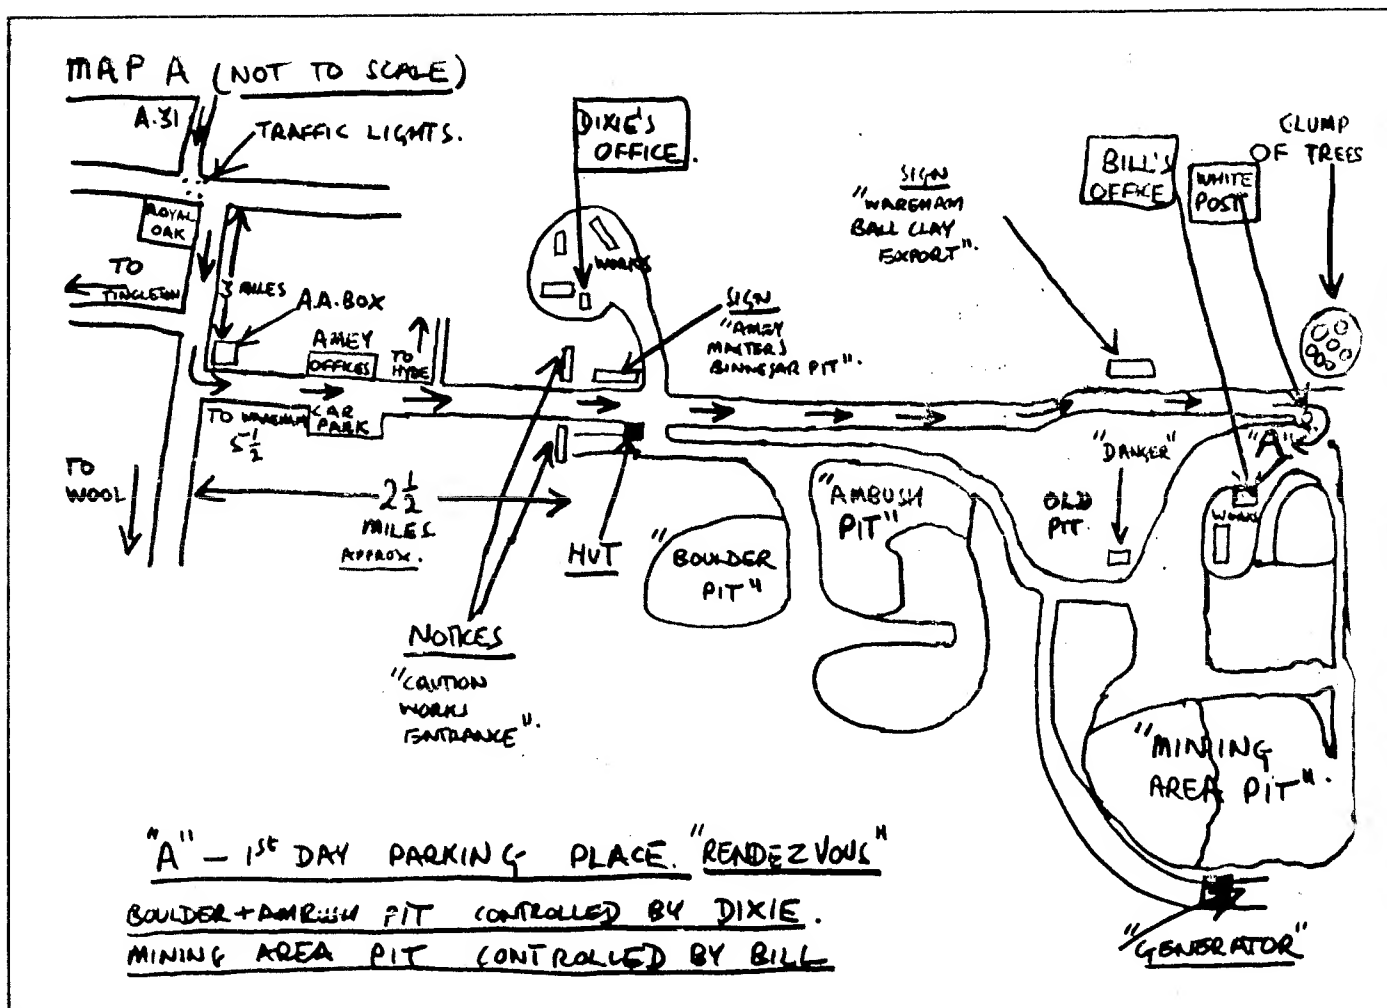 MAP A (NOT TO SCALE)
A.31
TRAFFIC LIGHTS.
ROYAL
OAK
TO
TINCLETON
3 MILES
A.A. BOX
AMEY
OFFICES
TO
HYDE
TO WAREHAM
5 1/2
CAR
PARK
TO
WOOL
2 1/2
MILES
APPROX.
DIXIE'S
OFFICE.
WORKS
SIGN
"AMEY
MASTERS
BINNEGAR PIT".
NOTICES
"CAUTION
WORKS
ENTRANCE".
HUT
"BOULDER
PIT"
"AMBUSH
PIT"
SIGN
"WAREHAM
BALL CLAY
EXPORT".
BILL'S
OFFICE
WHITE
POST
CLUMP
OF TREES
"DANGER"
OLD
PIT.
"A"
WORKS
"MINING
AREA PIT".
"GENERATOR"
"A" – 1st DAY PARKING PLACE. "RENDEZVOUS"
BOULDER + AMBUSH PIT CONTROLLED BY DIXIE.
MINING AREA PIT CONTROLLED BY BILL